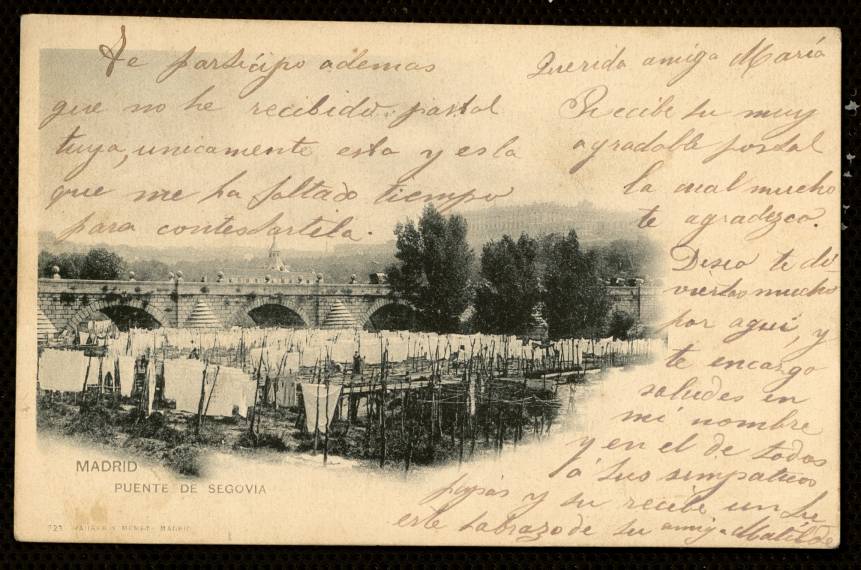 Querida amiga María
Recibe tu muy
agradable postal
la cual mucho
te agradezco.
Deseo te di
viertas mucho
por aquí, y
te encargo
saludes en
mi nombre
y en el de todos
á tus simpaticos
papás y tu recibe un fu
erte habrazo de tu amiga Matilde
Te participo ademas
que no he recibido postal
tuya, unicamente esta y es la
que me ha faltado tiempo
para contestartila.
MADRID
PUENTE DE SEGOVIA
723 HAUSER Y MENET. MADRID